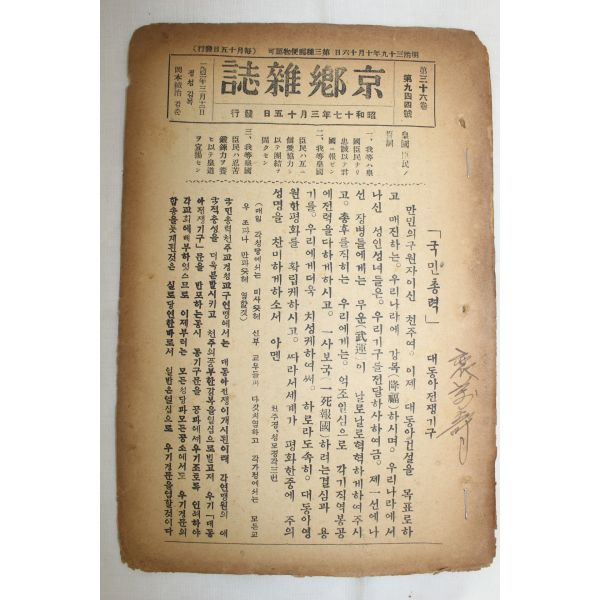 明治三十九年十月十六日 第三種郵便物認可 (每月十五日發行)
第三十六卷
第九四四號
京鄉雜誌
昭和十七年三月十五日 發行
岡本鐵治 감준
皇國臣民ノ
誓詞
一、我等ハ皇
國臣民ナリ
忠誠以テ君
國ニ報ゼン
二、我等皇國
臣民ハ互ニ
信愛協力シ
以テ團結ヲ
固クセン
三、我等皇國
臣民ハ忍苦
鍛鍊力ヲ養
ヒ以テ皇道
ヲ宣揚セン
「국민총력」 대동아전쟁기구
만민의구원자이신 천주여。이제 대동아건설을 목표로하
고 매진하는。우리나라에 강복(降福)하시며。우리나라에서
나신 성인성녀들은。우리기구를전달하사하여금。제一선에나
선 장병들에게는 무운(武運)이 날로날로혁혁하게하여주시
고。총후를직히는 우리에게는。억조일심으로 각기직역봉공
에전력을다하게하시고。一사보국(一死報國)하려는결심과 용
기를。우리에게더욱 치성케하여써。하로라도속히。대동아영
원한평화를 확립케하시고。따라서세계가 평화한중에 주의
성명을 찬미하게하소서 아멘
천주경、성모경각三번
(매일 각성당에서는 미사후에 신부 교우들과 다갓치염하고 각가정에서는 모든교
우 조과나 만과후에 염할것)
국민총력천주교경성교구연맹에서는 대동아전쟁이개시된이래 각연맹원의 애
국적충성을 더욱분발시키고 천주의풍부한강복을일심으로빌고저 우기「대동
아전쟁기구」문을 반포하는동시 동기구문을 공과에끼우기조토록 인쇄하야
각교회에배부하엿스므로 이제부터는 모든성당과모든공소에서도 우기경문의
합송을듯게된것은 실로당연한바로서 일반은열심으로 우기경문을염할것이다